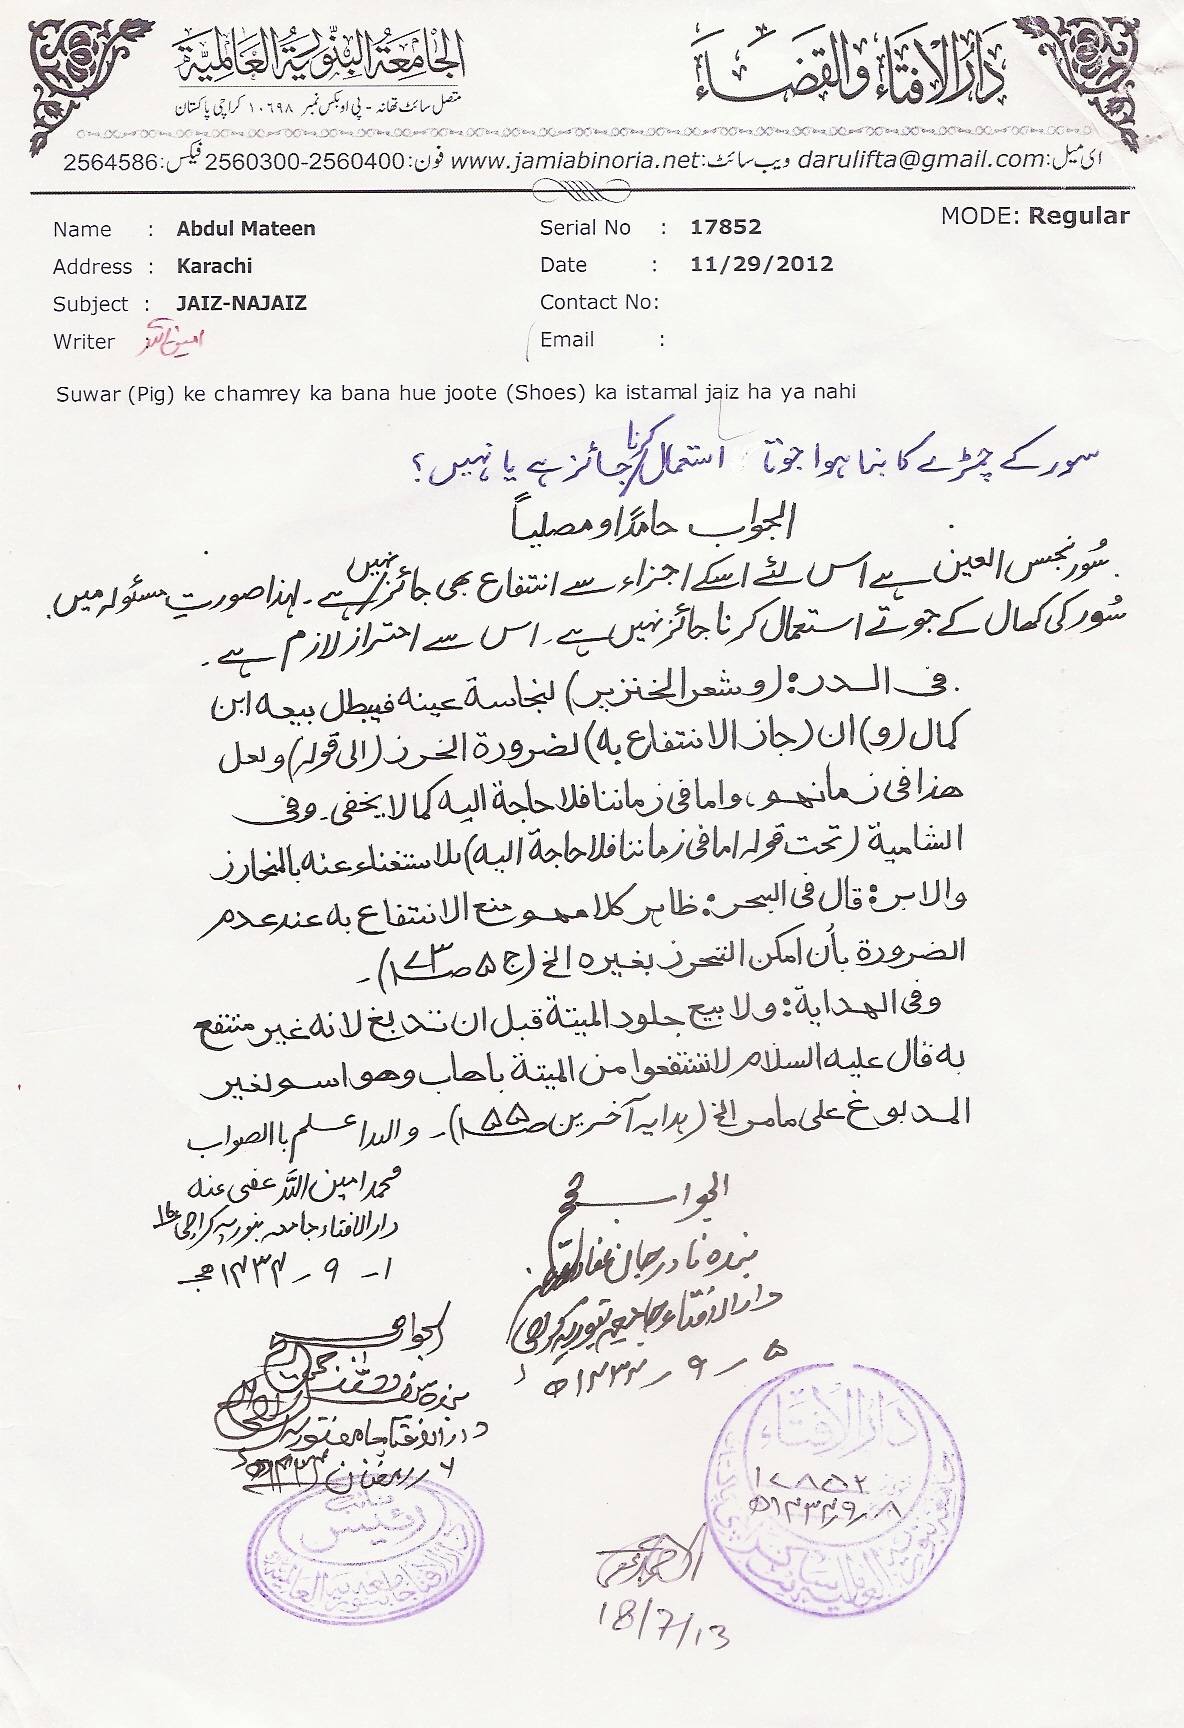 دار الافتاء والقضاء
الجامعة البنورية العالمية
متصل سائٹ تھانہ - پی او بکس نمبر ۱۰۶۹۸ کراچی پاکستان
ای میل:darulifta@gmail.com ویب سائٹ:www.jamiabinoria.net فون:2560300-2560400 فیکس:2564586
MODE: Regular
Name : Abdul Mateen
Serial No : 17852
Address : Karachi
Date : 11/29/2012
Subject : JAIZ-NAJAIZ
Contact No:
Writer امین اللہ
Email :
Suwar (Pig) ke chamrey ka bana hue joote (Shoes) ka istamal jaiz ha ya nahi
سور کے چمڑے کا بنا ہوا جوتا استعمال کرنا جائز ہے یا نہیں؟
الجواب حامدًا ومصلیاً
سُور نجس العین ہے اس لئے اسکے اجزاء سے انتفاع بھی جائز نہیں ہے۔ لہذا صورتِ مسئولہ میں
سُور کی کھال کے جوتے استعمال کرنا جائز نہیں ہے۔ اس سے احتراز لازم ہے۔
فی الدرة: (وشعر الخنزیر) لنجاسة عینه فیبطل بیعه ابن
کمال (و) ان (جاز الانتفاع به) لضرورة الخرز (الی قوله) ولعل
هذا فی زمانهم، واما فی زماننا فلا حاجة الیه کما لا یخفی۔ وفی
الشامیة (تحت قوله اما فی زماننا فلا حاجة الیه) للاستغناء عنه بالمخارز
والابر: قال فی البحر: ظاهر کلامهم منع الانتفاع به عند عدم
الضرورة بأن امکن الخرز بغیره الخ (ج ۵ ص ۷۳)۔
وفی الهدایة: ولا بیع جلود المیتة قبل ان تدبغ لانه غیر منتفع
به قال علیه السلام لا تنتفعوا من المیتة باهاب وهو اسم لغیر
المدبوغ علی ما مر الخ (ہدایہ آخرین ص ۵۵)۔ واللہ اعلم باالصواب
محمد امین اللہ عفی عنہ
دار الافتاء جامعہ بنوریہ کراچی
۱۔ ۹۔ ۱۴۳۴ھ
الجواب صحیح
بندہ نادر جان
دار الافتاء جامعہ بنوریہ کراچی
۵ ۔ ۹ ۔ ۱۴۳۴ھ
الجواب صحیح
دار الافتاء جامعہ بنوریہ
۶ رمضان ۱۴۳۴ھ
دار الافتاء
۱۷۸۵۲
۸۔۹۔۱۴۳۴ھ
رئیس
18/7/13